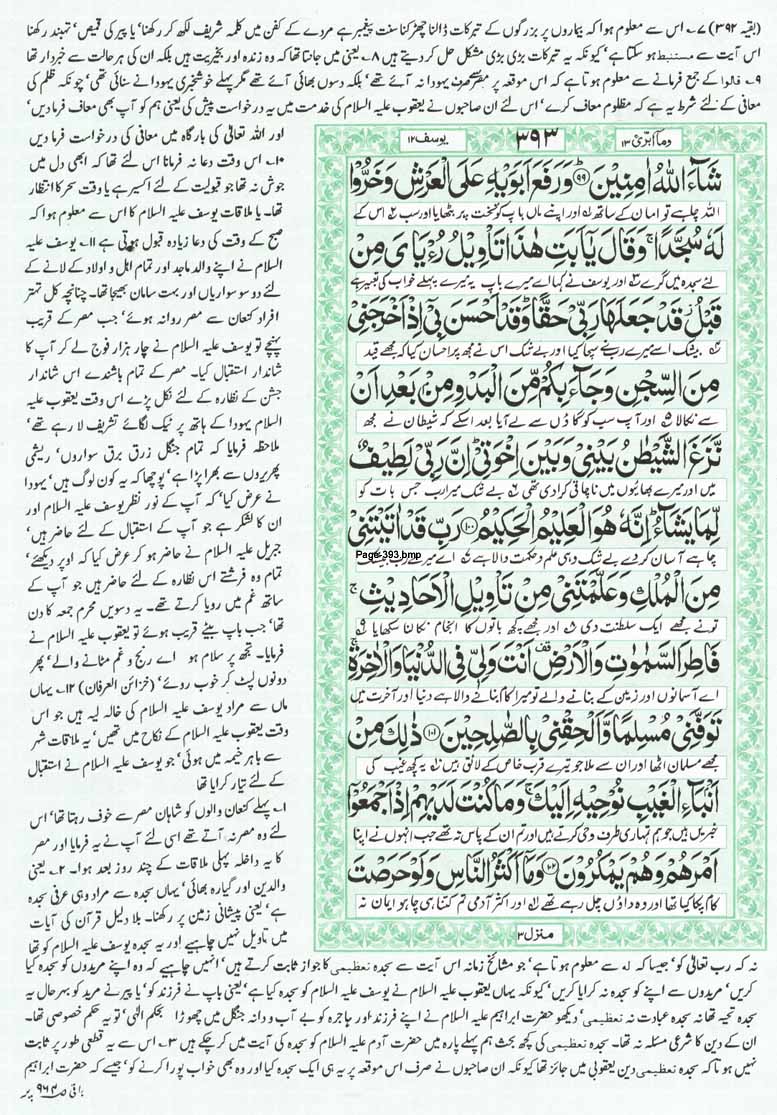 (بقیہ ۳۹۲) ۷؎ اس سے معلوم ہوا کہ بیماروں پر بزرگوں کے تبرکات ڈالنا چھڑکنا سنت پیغمبر ہے مردے کے کفن میں کلمہ شریف لکھ کر رکھنا' یا پیر کی قمیص' تہبند رکھنا
اس آیت سے مستنبط ہو سکتا ہے' کیونکہ یہ تبرکات بڑی بڑی مشکل حل کر دیتے ہیں ۸؎ یعنی میں جانتا تھا کہ وہ زندہ اور بخیریت ہیں بلکہ ان کی ہر حالت سے خبردار تھا
۹؎ قالوا کے جمع فرمانے سے معلوم ہوتا ہے کہ اس موقعہ پر یہودا نہ آئے تھے' بلکہ دسوں بھائی آئے تھے مگر پہلے خوشخبری یہودا نے سنائی تھی' چونکہ ظلم کی
معافی کے لئے شرط یہ ہے کہ مظلوم معاف کرے' اس لئے ان صاحبوں نے یعقوب علیہ السلام کی خدمت میں یہ درخواست پیش کی یعنی ہم کو آپ بھی معاف فرما دیں'
اور اللہ تعالیٰ کی بارگاہ میں معافی کی درخواست فرما دیں
۱۰؎ اس وقت دعا نہ فرمانا اس لئے تھا کہ ابھی دل میں
جوش نہ تھا جو قبولیت کے لئے اکسیر ہے یا وقت سحر کا انتظار
تھا۔ یا ملاقات یوسف علیہ السلام کا اس سے معلوم ہوا کہ
صبح کے وقت کی دعا زیادہ قبول ہوتی ہے ۱۱؎ یوسف علیہ
السلام نے اپنے والد ماجد اور تمام اہل و اولاد کے لانے کے
لئے دو سو سواریاں اور بہت سامان بھیجا تھا۔ چنانچہ کل تہتر
افراد کنعان سے مصر روانہ ہوئے' جب مصر کے قریب
پہنچے تو یوسف علیہ السلام نے چار ہزار فوج لے کر آپ کا
شاندار استقبال کیا۔ مصر کے تمام باشندے اس شاندار
جشن کے نظارہ کے لئے نکل پڑے اس وقت یعقوب علیہ
السلام یہودا کے ہاتھ پر ٹیک لگائے تشریف لا رہے تھے'
ملاحظہ فرمایا کہ تمام جنگل زرق برق سواروں' ریشمی
پھریروں سے بھرا پڑا ہے' پوچھا کہ یہ کون لوگ ہیں' یہودا
نے عرض کیا' کہ آپ کے نور نظر یوسف علیہ السلام اور
ان کا لشکر ہے جو آپ کے استقبال کے لئے حاضر ہیں'
جبریل علیہ السلام نے حاضر ہو کر عرض کیا کہ اوپر دیکھئے'
تمام وہ فرشتے اس نظارہ کے لئے حاضر ہیں جو آپ کے
ساتھ غم میں رویا کرتے تھے۔ یہ دسویں محرم جمعہ کا دن
تھا' جب باپ بیٹے قریب ہوئے تو یعقوب علیہ السلام نے
فرمایا۔ تجھ پر سلام ہو اے رنج و غم مٹانے والے' پھر
دونوں لپٹ کر خوب روئے' (خزائن العرفان) ۱۲؎ یہاں
ماں سے مراد یوسف علیہ السلام کی خالہ لیہ ہیں جو اس
وقت یعقوب علیہ السلام کے نکاح میں تھیں' یہ ملاقات شہر
سے باہر خیمہ میں ہوئی' جو یوسف علیہ السلام نے استقبال
کے لئے تیار کرایا تھا
۱؎ پہلے کنعان والوں کو شاہان مصر سے خوف رہتا تھا' اس
لئے وہ مصر نہ آتے تھے اسی لئے آپ نے یہ فرمایا اور مصر
کا یہ داخلہ پہلی ملاقات کے چند روز بعد ہوا۔ ۲؎ یعنی
والدین اور گیارہ بھائی' یہاں سجدہ سے مراد وہی عرفی سجدہ
ہے' یعنی پیشانی زمین پر رکھنا۔ بلا دلیل قرآن کی آیات
میں تاویل نہیں چاہیے اور یہ سجدہ یوسف علیہ السلام کو تھا
وما ابرئ ۱۳
۳۹۳
یوسف ۱۲
شَآءَ اللّٰهُ اٰمِنِیْنَ ﴿۹۹﴾ وَرَفَعَ اَبَوَیْهِ عَلَی الْعَرْشِ وَخَرُّوْا
اللہ چاہے تو امان کے ساتھ اور اپنے ماں باپ کو تخت پر بٹھایا اور سب اس کے
لَهٗ سُجَّدًا ۚ وَقَالَ یٰۤاَبَتِ هٰذَا تَاْوِیْلُ رُءْیَایَ مِنْ
لئے سجدہ میں گرے اور یوسف نے کہا اے میرے باپ یہ میرے پہلے خواب کی تعبیر ہے
قَبْلُ ؗ قَدْ جَعَلَهَا رَبِّیْ حَقًّا ؕ وَقَدْ اَحْسَنَ بِیْۤ اِذْ اَخْرَجَنِیْ
بیشک اسے میرے رب نے سچا کیا اور بے شک اس نے مجھ پر احسان کیا کہ مجھے قید
مِنَ السِّجْنِ وَجَآءَ بِكُمْ مِّنَ الْبَدْوِ مِنْۢ بَعْدِ اَنْ
سے نکالا اور آپ سب کو گاؤں سے لے آیا بعد اسکے کہ شیطان نے مجھ
نَّزَغَ الشَّیْطٰنُ بَیْنِیْ وَبَیْنَ اِخْوَتِیْ ؕ اِنَّ رَبِّیْ لَطِیْفٌ
میں اور میرے بھائیوں میں ناچاقی کرا دی تھی بے شک میرا رب جس بات کو
لِّمَا یَشَآءُ ؕ اِنَّهٗ هُوَ الْعَلِیْمُ الْحَكِیْمُ ﴿۱۰۰﴾ رَبِّ قَدْ اٰتَیْتَنِیْ
Page-393.bmp
چاہے آسان کر دے بے شک وہی علم و حکمت والا ہے اے میرے رب بیشک
مِنَ الْمُلْكِ وَعَلَّمْتَنِیْ مِنْ تَاْوِیْلِ الْاَحَادِیْثِ ۚ
تو نے مجھے ایک سلطنت دی اور مجھے کچھ باتوں کا انجام نکالنا سکھایا
فَاطِرَ السَّمٰوٰتِ وَالْاَرْضِ ۫ اَنْتَ وَلِیّٖ فِی الدُّنْیَا وَالْاٰخِرَةِ ۚ
اے آسمانوں اور زمین کے بنانے والے تو میرا کام بنانے والا ہے دنیا اور آخرت میں
تَوَفَّنِیْ مُسْلِمًا وَّاَلْحِقْنِیْ بِالصّٰلِحِیْنَ ﴿۱۰۱﴾ ذٰلِكَ مِنْ
مجھے مسلمان اٹھا اور ان سے ملا جو تیرے قرب خاص کے لائق ہیں یہ کچھ غیب کی
اَنْۢبَآءِ الْغَیْبِ نُوْحِیْهِ اِلَیْكَ ۚ وَمَا كُنْتَ لَدَیْهِمْ اِذْ اَجْمَعُوْۤا
خبریں ہیں جو ہم تمہاری طرف وحی کرتے ہیں اور تم ان کے پاس نہ تھے جب انہوں نے اپنا
اَمْرَهُمْ وَهُمْ یَمْكُرُوْنَ ﴿۱۰۲﴾ وَمَاۤ اَكْثَرُ النَّاسِ وَلَوْ حَرَصْتَ
کام پکا کیا تھا اور وہ داؤں چل رہے تھے اور اکثر آدمی تم کتنا ہی چاہو ایمان نہ
منزل ۳
نہ کہ رب تعالیٰ کو' جیسا کہ لہ سے معلوم ہوتا ہے' جو مشائخ زمانہ اس آیت سے سجدہ تعظیمی کا جواز ثابت کرتے ہیں' انہیں چاہیے کہ وہ اپنے مریدوں کو سجدہ کیا
کریں' مریدوں سے اپنے کو سجدہ نہ کرایا کریں' کیونکہ یہاں یعقوب علیہ السلام نے یوسف علیہ السلام کو سجدہ کیا ہے' یعنی باپ نے فرزند کو' یا پیر نے مرید کو بہرحال یہ
سجدہ تحیہ تھا نہ سجدہ عبادت نہ تعظیمی' دیکھو حضرت ابراہیم علیہ السلام نے اپنے فرزند اور ہاجرہ کو بے آب و دانہ جنگل میں چھوڑا بحکم الٰہی' تو یہ حکم خصوصی تھا۔
ان کے دین کا شرعی مسئلہ نہ تھا۔ سجدہ تعظیمی کی کچھ بحث ہم پہلے پارہ میں حضرت آدم علیہ السلام کو سجدہ کی آیت میں کر چکے ہیں ۳؎ اس سے یہ قطعی طور پر ثابت
نہیں ہوتا کہ سجدہ تعظیمی دین یعقوبی میں جائز تھا کیونکہ ان صاحبوں نے صرف اس موقعہ پر یہ ہی ایک سجدہ کیا اور وہ بھی خواب پورا کرنے کو' جیسے کہ حضرت ابراہیم
باقی ص ۹۶۲ پر